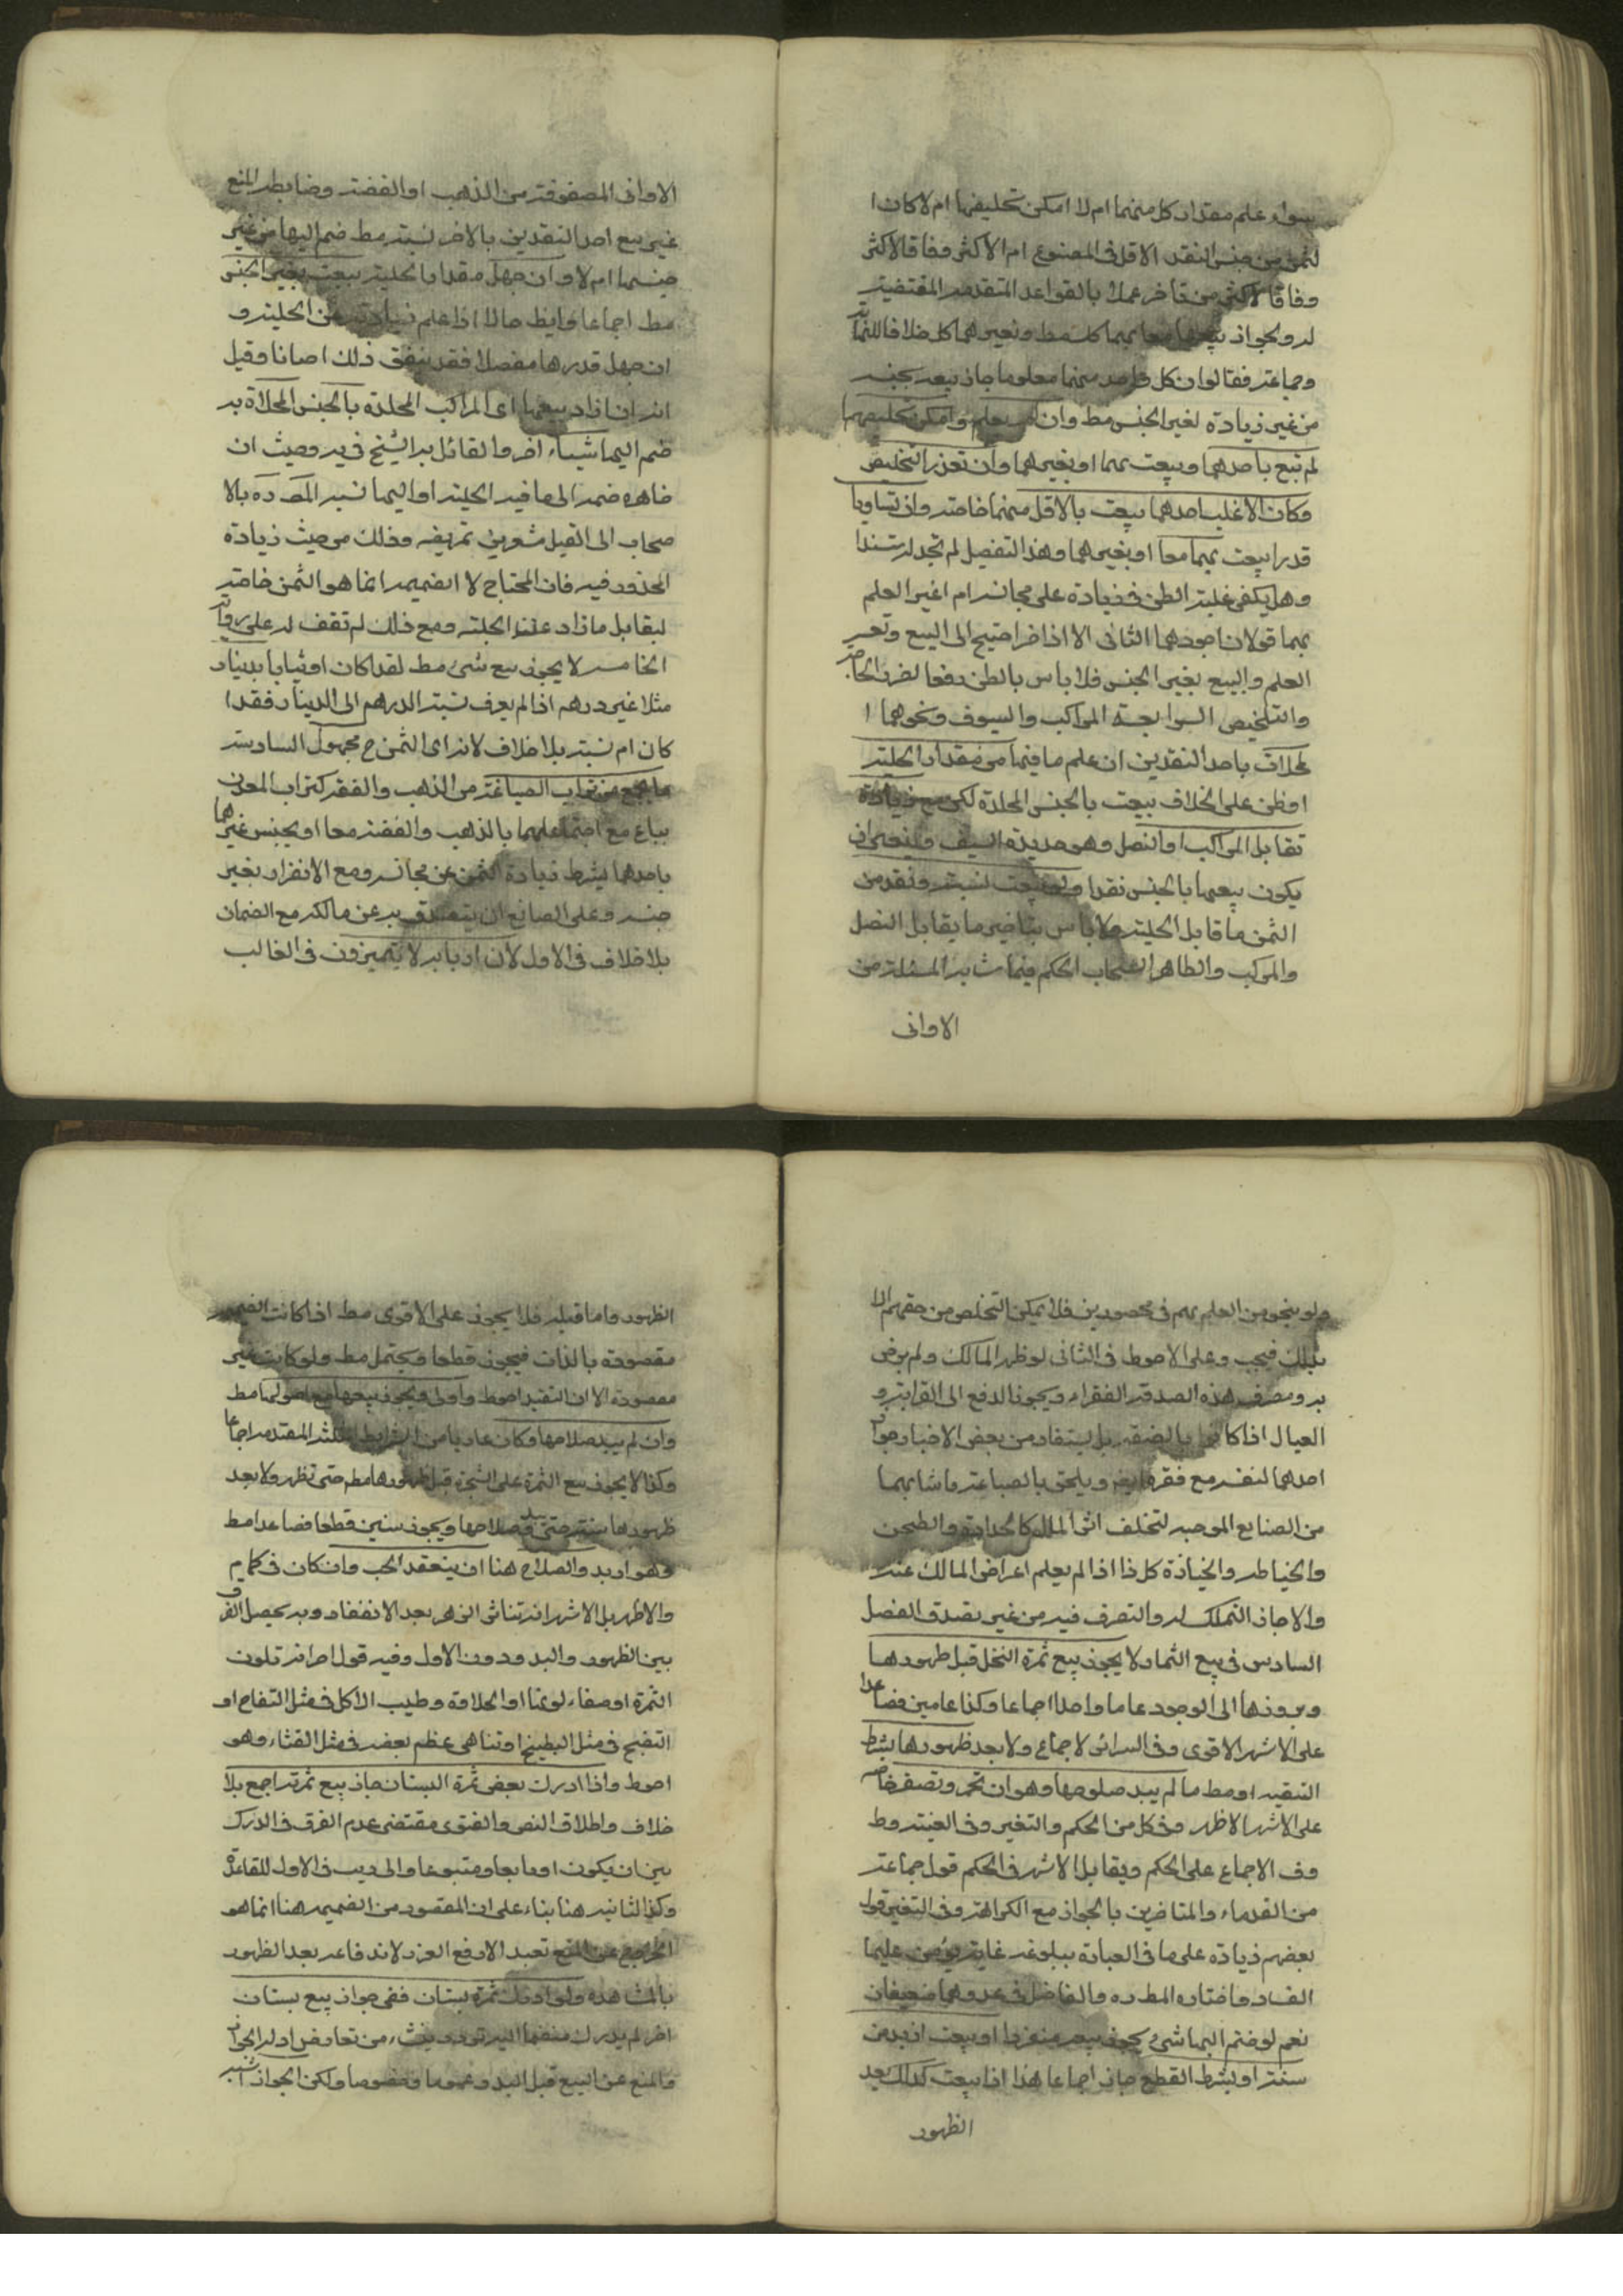 سواء علم مقدار كل منهما ام لا امكن تخليصها ام لا كان ا
لثمن من جنس النقد الاقل في المصنوع ام الاكثر وفاقا لاكثر
وفاقا لاكثر من تاخر عملا بالقواعد المتقدمه المقتضيه
له ويجوز بيعها معا بهما كل مط وبغيرهما كل خلافا للنهاية
وجماعه فقالوا ان كل واحد منهما معلوما جاز بيعه بجنسه
من غير زيادة لغير الجنس مط وان لم يعلم وامكن تخليصهما
لم تبع باحدهما وبيعت بهما او بغيرهما وان تعذر التخليص
وكان الاغلب احدهما بيعت بالاقل منهما خاصه وان تساويا
قدرا بيعت بهما معا او بغيرهما وهذا التفصيل لم نجد له مستندا
وهل يكفي غلبة الظن في زيادة على مجانسه ام اغير العلم
بهما قولان اجودهما الثاني الا اذا اضر احتيج الى البيع وتعسر
العلم والبيع بغير الجنس فلا باس بالظن دفعا لضرر الحاضر
والتلخيص السوا بعه المراكب والسيوف ونحوهما ا
لمحلاة باحد النقدين ان علم ما فيها من مقدار الحليه
او ظن على الخلاف بيعت بالجنس المحلاة لكن مع زيادة
تقابل المراكب او النصل وهو حديدة السيف وينحو ان
يكون بيعها بالجنس نقدا ولو بيعت نسيه ونقد من
الثمن ما قابل الحليه ولا باس بتاخير ما يقابل النصل
والمركب والظاهر انسحاب الحكم فيما شابه المسئلة من
الاواني
الاواني المصفوقة من الذهب او الفضه وضابطه المنع
غير بيع احد النقدين بالاخر نسيه مط ضم اليها من غير
جنسهما ام لا وان جهل مقدار الحليه بيعت بغير الجنس
مط اجماعا وايضا حالا اذا علم زيادته عن الحليه و
ان جهل قدرها مفصلا فقد يتفق ذلك احيانا وقيل
انه ان اراد بيعها اي المراكب المحلاة بالجنس المحلاة به
ضم اليها شيئا اخر والقائل به الشيخ في يه وحيث ان
ظاهره ضمه الى ما فيه الحليه او اليها نسبه المصره بالا
صحاب الى القيل مشعرين تمريضه وذلك من حيث زيادة
المحذور فيه فان المحتاج لا الضميمه انما هو الثمن خاصه
ليقابل ما زاد عنه الحليه ومع ذلك لم نقف له على رواية
الخامسه لا يجوز بيع شيء مط نقدا كان او ثيابا بدينار
مثلا غير درهم اذا لم يعرف نسبه الدرهم الى الدينار فقدا
كان ام نسيه بلا خلاف لانه اي الثمن ح مجهول السادسه
ما يجمع من تراب الصياغه من الذهب والفضه كتراب المعدن
يباع مع اجتماعهما بالذهب والفضه معا او بجنس غيرهما
باحدهما بشرط زيادة الثمن عن مجانسه ومع الانفراد بغير
جنسه وعلى الصانع ان يتصدق به عن مالكه مع الضمان
بلا خلاف في الاول لان اربابه لا يتميزون في الغالب
ولو بنحو من العلم بهم في محصورين فلا يمكن التخلص من حقهم الا
بذلك فيجب وعلى الاحوط في الثاني لو ظهر المالك ولم يرض
به ومصرف هذه الصدقة الفقراء ويجوز الدفع الى القرابه و
العيال اذا كانوا بالصفه بل يستفاد من بعض الاخبار جواز
احدهما لنفسه مع فقره ويلحق بالصياغه ما شابهها
من الصنايع الموجبه لتخلف اثر المال كالحدادة والطحن
والخياطه والخبازة كل ذا اذا لم يعلم اعراض المالك عنه
والا جاز التملك له والتصرف فيه من غير تصدق الفصل
السادس في بيع الثمار لا يجوز بيع ثمرة النخل قبل ظهورها
وبروزها الى الوجود عاما واحدا اجماعا وكذا عامين فصاعدا
على الاشهر الاقوى وفي السرائر الاجماع ولا بعد ظهورها بشرط
التبقيه او مط ما لم يبد صلوحها وهو ان تحمر وتصفر خاصه
على الاشهر الاظهر وفي كل من الحكم والتغير وفي الغنيه وط
وف الاجماع على الحكم ويقابل الاشهر في الحكم قول جماعه
من القدماء والمتاخرين بالجواز مع الكراهه وفي التغير قول
بعضهم زيادة على ما في العبارة ببلوغه غاية يؤمن عليها
الفساد واختاره المط ره والفاضل في عد وهما ضعيفان
نعم لو ضم اليها شيء يجوز بيعه منفردا او بيعت ازيد من
سنه او بشرط القطع جاز اجماعا هذا اذا بيعت كذلك بعد
الظهور
الظهور واما قبله فلا يجوز على الاقوى مط اذا كانت الضميمه
مقصودة بالذات فيجوز قطعا ويحتمل مط ولو كانت غير
مقصودة الا ان التقييد احوط واولى ويجوز بيعها مع اصولها مط
وان لم يبد صلاحها وكان عاريا من الشرايط الثلثه المتقدمه اجماعا
وكذا لا يجوز بيع الثمرة على الشجرة قبل ظهورها مط حتى تظهر ولا بعد
ظهورها سنة حتى يبد صلاحها ويجوز سنين قطعا فصاعدا مط
وهو اربد والصلاح هنا ان ينعقد الحب وان كان في كمام
والاظهر بل الاشهر انه تناثر الزهر بعد الانعقاد وبه يحصل الفرق
بين الظهور والبدو دون الاول وفيه قول اخر انه تلون
الثمرة او صفاء لونها او الحلاوة وطيب الاكل في مثل التفاح او
التضيج في مثل البطيخ او تناهي عظم بعضه في مثل القثاء وهو
احوط واذا ادرك بعض ثمرة البستان جاز بيع ثمرته اجمع بلا
خلاف واطلاق النص والفتوى مقتضى عدم الفرق في الدرك
بين ان يكون تابعا ومتبوعا ولا ريب في الاول للقاعدة
وكذا الثانيه هنا بناء على ان المقصود من الضميمه هنا انما هو
الخروج عن المنع تعبد الا رفع الغرر لاندفاعه بعد الظهور
بالمشاهده ولو ادرك ثمرة بستان ففي جواز بيع بستان
اخر لم يدرك منضما اليه تردد ينشاء من تعارض ادلة الجواز
والمنع عن البيع قبل البدو عموما وخصوصا ولكن الجواز اشبه